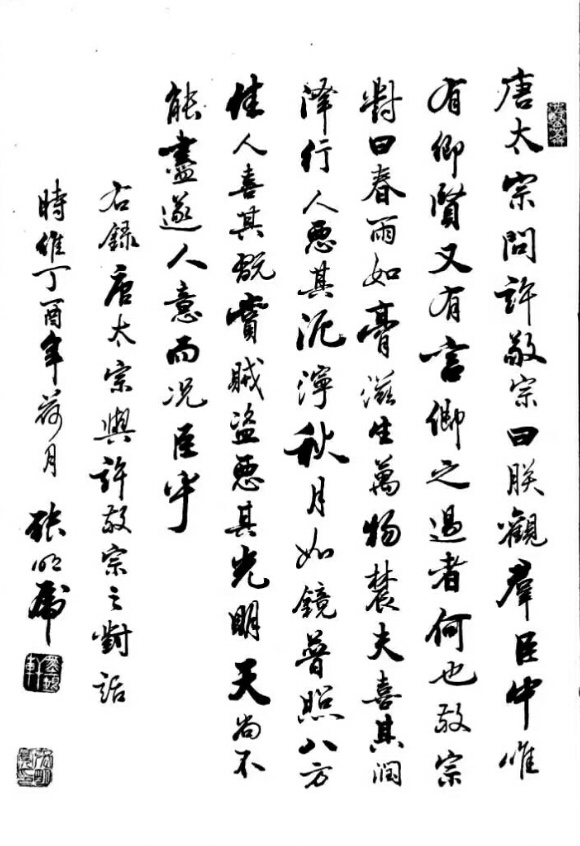 唐太宗問許敬宗曰朕觀羣臣中唯
有卿賢又有言卿之過者何也敬宗
對曰春雨如膏滋生萬物農夫喜其潤
澤行人惡其泥濘秋月如鏡普照八方
佳人喜其翫賞賊盜惡其光明天尚不
能盡遂人意而况臣乎
右錄唐太宗與許敬宗之對話
時維丁酉年荷月 張